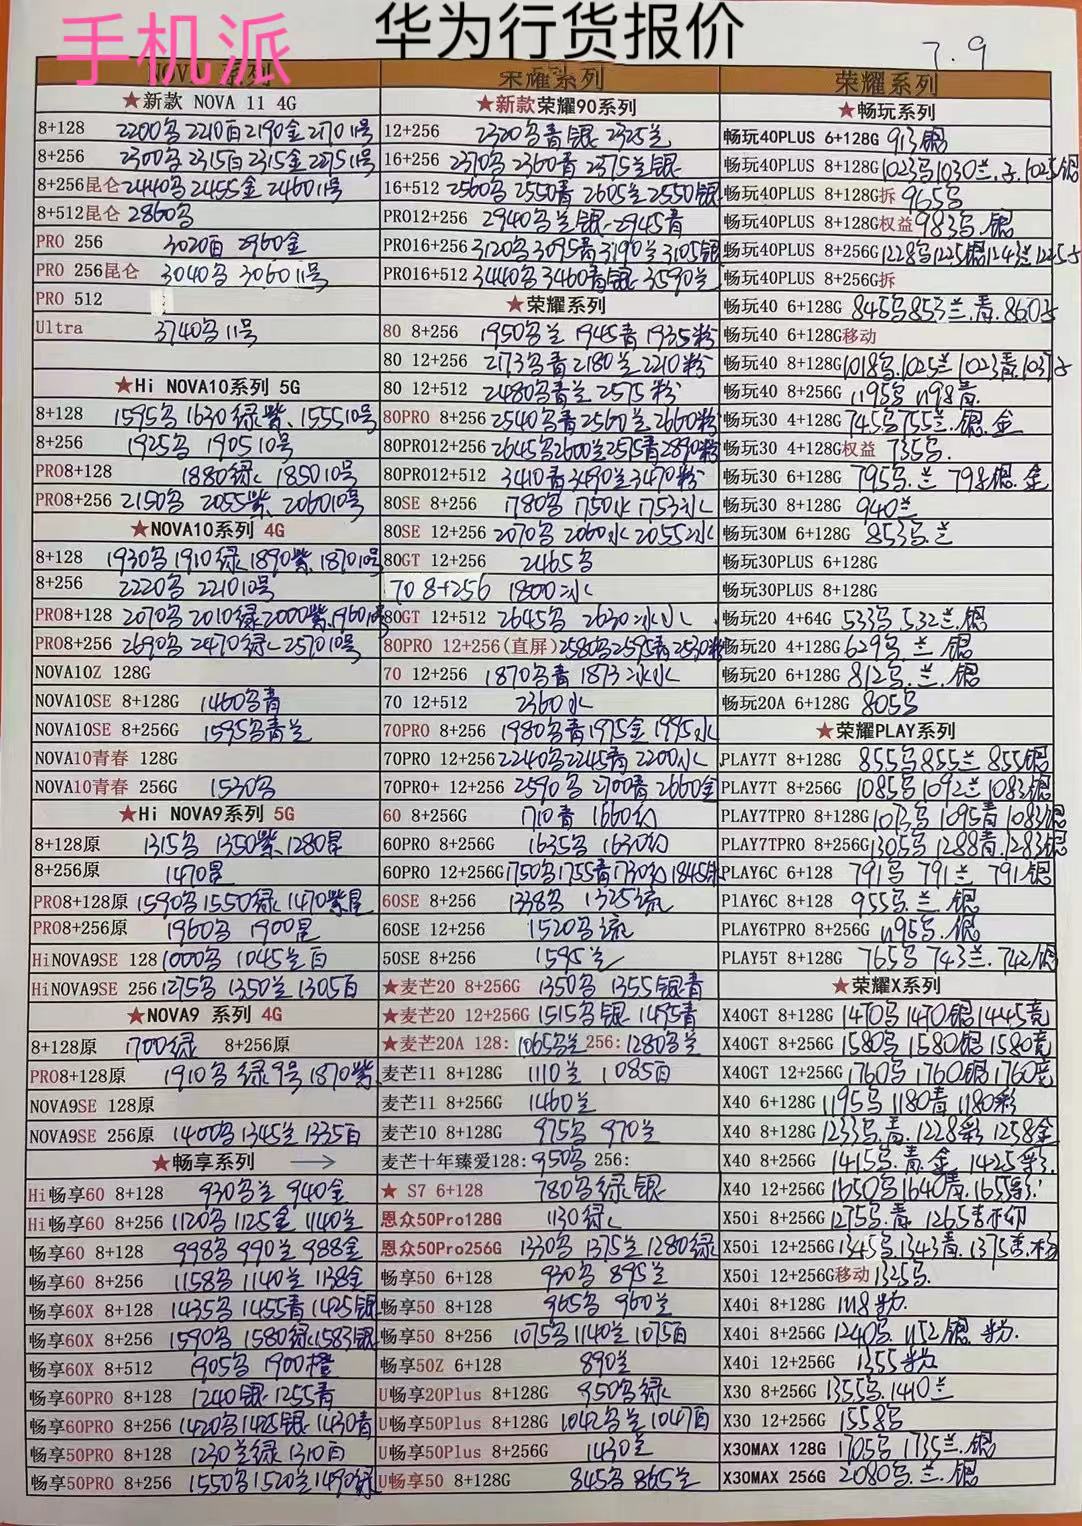 手机派
华为行货报价
7.9
NOVA 系列
★新款 NOVA 11 4G
8+128 2200乌 2210百 2190金 2170 11号
8+256 2300乌 2315百 2315金 2275 11号
8+256昆仑 2440乌 2455金 2460 11号
8+512昆仑 2860乌
PRO 256 3020百 2960金
PRO 256昆仑 3040乌 3060 11号
PRO 512
Ultra 3740乌 11号
★Hi NOVA10系列 5G
8+128 1595乌 1630绿紫、1555 10号
8+256 1925乌 1905 10号
PRO8+128 1880绿 1850 10号
PRO8+256 2150乌 2055紫、2060 10号
★NOVA10系列 4G
8+128 1930乌 1910绿 1890紫、1870 10号
8+256 2220乌 2210 10号
PRO8+128 2070乌 2010绿 2000紫、1960 10号
PRO8+256 2690乌 2470绿 2570 10号
NOVA10Z 128G
NOVA10SE 8+128G 1460乌青
NOVA10SE 8+256G 1595乌青兰
NOVA10青春 128G
NOVA10青春 256G 1530乌
★Hi NOVA9系列 5G
8+128原 1315乌 1350紫、1280星
8+256原 1470星
PRO8+128原 1590乌 1550绿 1470紫星
PRO8+256原 1960乌 1900星
HiNOVA9SE 128 1000乌 1045兰百
HiNOVA9SE 256 1275乌 1350兰 1305百
★NOVA9 系列 4G
8+128原 1700绿 8+256原
PRO8+128原 1910乌 绿 9号 1870紫
NOVA9SE 128原
NOVA9SE 256原 1400乌 1345兰 1335百
★畅享系列 →
Hi畅享60 8+128 930乌兰 940金
Hi畅享60 8+256 1120乌 1125金 1140兰
畅享60 8+128 998乌 990兰 988金
畅享60 8+256 1158乌 1140兰 1138金
畅享60X 8+128 1435乌 1455青 1425银
畅享60X 8+256 1590乌 1580绿 1583银
畅享60X 8+512 1905乌 1900橙
畅享60PRO 8+128 1240银 1255青
畅享60PRO 8+256 1420乌 1425银 1430青
畅享50PRO 8+128 1230兰绿 1310百
畅享50PRO 8+256 1550乌 1520兰 1490绿
荣耀系列
★新款荣耀90系列
12+256 2320乌青银 2325兰
16+256 2370乌 2360青 2375兰银
16+512 2560乌 2550青 2605兰 2550银
PRO12+256 2940乌兰银 2945青
PRO16+256 3120乌 3095青 3190兰 3105银
PRO16+512 3440乌 3460青银 3590兰
★荣耀系列
80 8+256 1950乌兰 1945青 1935粉
80 12+256 2173乌青 2180兰 2210粉
80 12+512 2480乌青兰 2575粉
80PRO 8+256 2540乌青 2560兰 2660粉
80PRO12+256 2645乌 2600兰 2575青 2890粉
80PRO12+512 3410青 3490兰 3470粉
80SE 8+256 1780乌 1750水 1753冰
80SE 12+256 2070乌 2060水 2055冰
80GT 12+256 2465乌
70 8+256 1800冰
80GT 12+512 2645乌 2630冰
80PRO 12+256(直屏) 2580乌 2595青 2530粉
70 12+256 1870乌青 1873冰水
70 12+512 2360水
70PRO 8+256 1980乌青 1975金 1995水
70PRO 12+256 2240乌 2245青 2200水
70PRO+ 12+256 2590乌 2700青 2660金
60 8+256G 1710青 1660幻
60PRO 8+256G 1635乌 1630幻
60PRO 12+256G 1750乌 1755青 1730幻 1845绿
60SE 8+256 1338乌 1325流
60SE 12+256 1520乌流
50SE 8+256 1595兰
★麦芒20 8+256G 1350乌 1355银青
★麦芒20 12+256G 1515乌银 1495青
★麦芒20A 128: 1065乌兰 256: 1280乌兰
麦芒11 8+128G 1110兰 1085百
麦芒11 8+256G 1460兰
麦芒10 8+128G 975乌 970兰
麦芒十年臻爱128: 950乌 256:
★ S7 6+128 780乌绿银
恩众50Pro128G 1130绿
恩众50Pro256G 1330乌 1375兰 1280绿
畅享50 6+128 930乌 895兰
畅享50 8+128 965乌 960兰
畅享50 8+256 1075乌 1140兰 1075百
畅享50Z 6+128 890兰
U畅享20Plus 8+128G 950乌绿
U畅享50Plus 8+128G 1042乌兰 1047百
U畅享50Plus 8+256G 1430兰
U畅享50 8+128G 845乌 865兰
荣耀系列
★畅玩系列
畅玩40PLUS 6+128G 913银
畅玩40PLUS 8+128G 1023乌 1030兰.子.1025银
畅玩40PLUS 8+128G拆 965乌
畅玩40PLUS 8+128G权益 983乌.银
畅玩40PLUS 8+256G 1228乌 1225银 1243兰 1245子
畅玩40PLUS 8+256G拆
畅玩40 6+128G 845乌 853兰.青.860子
畅玩40 6+128G移动
畅玩40 8+128G 1018乌.1025兰 1023青.1037子
畅玩40 8+256G 1195乌 1198青.
畅玩30 4+128G 745乌 755兰.银.金
畅玩30 4+128G权益 735乌.
畅玩30 6+128G 795乌.兰 798银.金
畅玩30 8+128G 940兰
畅玩30M 6+128G 853乌.兰
畅玩30PLUS 6+128G
畅玩30PLUS 8+128G
畅玩20 4+64G 533乌 532兰.银
畅玩20 4+128G 629乌.兰 银
畅玩20 6+128G 812乌.兰.银
畅玩20A 6+128G 805乌
★荣耀PLAY系列
PLAY7T 8+128G 855乌 855兰 855银
PLAY7T 8+256G 1085乌 1092兰 1083银
PLAY7TPRO 8+128G 1073乌 1095青 1083银
PLAY7TPRO 8+256G 1305乌 1288青.1283银
PLAY6C 6+128 791乌 791兰 791银
PlAY6C 8+128 955乌.兰.银
PLAY6TPRO 8+256G 1195乌.银
PLAY5T 8+128G 765乌 743兰.742银
★荣耀X系列
X40GT 8+128G 1470乌 1470银 1445竞
X40GT 8+256G 1580乌 1580银 1580竞
X40GT 12+256G 1760乌 1760银 1760竞
X40 6+128G 1195乌 1180青 1180彩
X40 8+128G 1233乌.青.1228彩 1258金
X40 8+256G 1415乌.青.金.1425彩.
X40 12+256G 1650乌 1640青.1655彩.
X50i 8+256G 1275乌.青 1265杏粉
X50i 12+256G 1345乌.1343青.1375杏.粉
X50i 12+256G移动 1325乌.
X40i 8+128G 1118粉.
X40i 8+256G 1240乌 1152银.粉.
X40i 12+256G 1355粉
X30 8+256G 1355乌.1410兰
X30 12+256G 1558乌
X30MAX 128G 1705乌 1735兰.银
X30MAX 256G 2080乌.兰.银